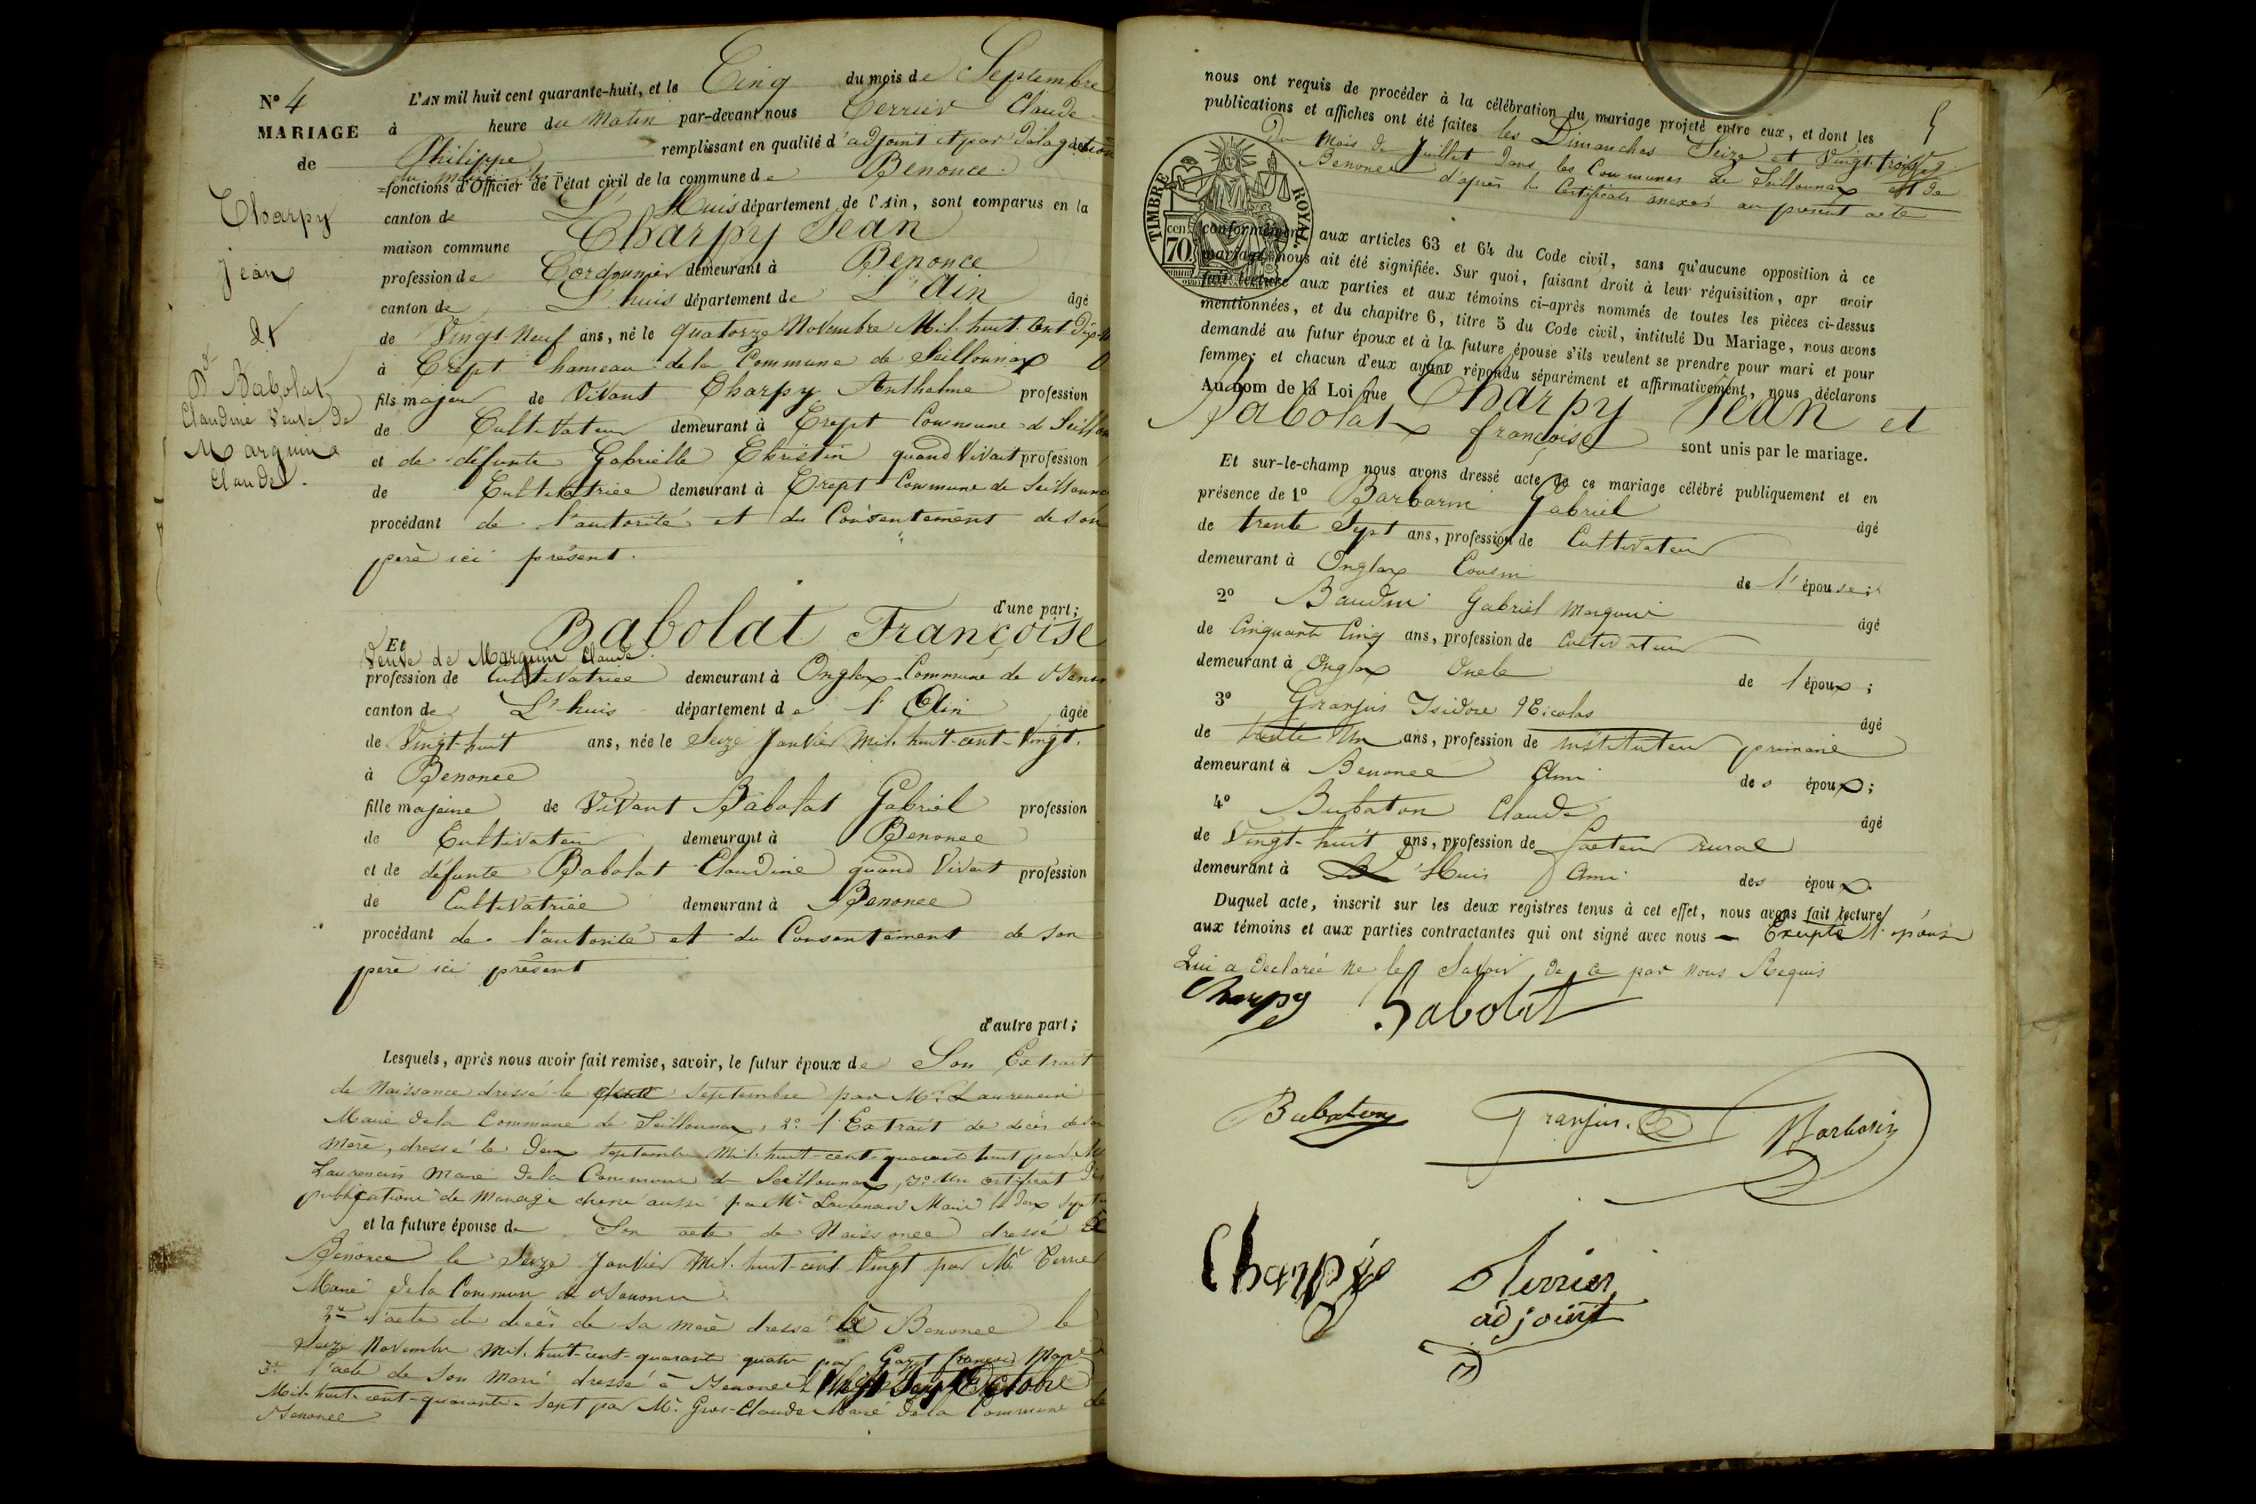 N° 4
MARIAGE
de
Charpy
Jean
et
Babolat
Claudine Veuve de
Marguin
Claude.
L'AN mil huit cent quarante-huit, et le Cinq du mois de Septembre
à heure du Matin par-devant nous Terrier Claude
Philippe remplissant en qualité d'adjoint et par délagation
du maire les
fonctions d'Officier de l'état civil de la commune de Benonce.
canton de L'Huis département de l'Ain, sont comparus en la
maison commune Charpy Jean
profession de Cordonnier demeurant à Benonce
canton de L'huis département de L'Ain âgé
de Vingt-Neuf ans, né le quatorze Novembre Mil-huit-Cent-Dix-
à Crept hameau de la Commune de Seillonnax
fils majeur de Vivant Charpy Anthelme profession
de Cultivateur demeurant à Crept Commune de Seillon
et de défunte Gabrielle Christin quand Vivait profession
de Cultivatrice demeurant à Crept Commune de Seillonna
procédant de l'autorité et du Consentement de son
père ici présent.
d'une part;
Et Babolat Françoise
Veuve de Marguin Claude
profession de Cultivatrice demeurant à Onglax Commune de Benon
canton de L'huis département de l'Ain âgée
de Vingt-huit ans, née le Seize Janvier Mil-huit-cent-Vingt.
à Benonce
fille majeure de Vivant Babolat Gabriel profession
de Cultivateur demeurant à Benonce
et de défunte Babolat Claudine quand Vivait profession
de Cultivatrice demeurant à Benonce
procédant de l'autorité et du Consentement de son
père ici présent
d'autre part;
Lesquels, après nous avoir fait remise, savoir, le futur époux de Son Extrait
de Naissance dressé le Septembre par Mr. Laurencin
Maire de la Commune de Seillonnax, 2° l'Extrait de décès de sa
mère, dressé le Deux Septembre Mil-huit-cent-quarante huit par Mr
Laurencin Maire de la Commune de Seillonnax, 3° Un certificat de
publications de Mariage aussi par Mr Laurencin Maire le deux Sept
et la future épouse de Son acte de Naissance dressé à
Benonce le Seize Janvier Mil-huit-cent Vingt par Mr Terrier
Maire de la Commune de Benonce
2° l'acte de décès de sa mère dressé à Benonce le
Seize Novembre Mil-huit-cent-quarante quatre par françois Maire
3° l'acte de son Mari dressé à Benonce le Vingt Sept Octobre
Mil-huit-cent-quarante-Sept par Mr. Gros-Claude Maire de la Commune de
Benonce
5
nous ont requis de procéder à la célébration du mariage projeté entre eux, et dont les
publications et affiches ont été faites les Dimanches Seize et Vingt-trois
Du Mois de Juillet dans les Communes de Seillonnax et de
Benonce d'après les Certificats anexés au présent acte
TIMBRE ROYAL
cen. 70
conformément aux articles 63 et 64 du Code civil, sans qu'aucune opposition à ce
mariage nous ait été signifiée. Sur quoi, faisant droit à leur réquisition, apr avoir
fait lecture aux parties et aux témoins ci-après nommés de toutes les pièces ci-dessus
mentionnées, et du chapitre 6, titre 5 du Code civil, intitulé Du Mariage, nous avons
demandé au futur époux et à la future épouse s'ils veulent se prendre pour mari et pour
femme; et chacun d'eux ayant répondu séparément et affirmativement, nous déclarons
Au nom de la Loi que Charpy Jean et
Babolat françoise sont unis par le mariage.
Et sur-le-champ nous avons dressé acte de ce mariage célébré publiquement et en
présence de 1° Barbarin Gabriel âgé
de trente Sept ans, profession de Cultivateur
demeurant à Onglax Cousin de l'épouse;
2° Baudin Gabriel Marguin âgé
de Cinquante Cinq ans, profession de Cultivateur
demeurant à Onglax Oncle de l'époux;
3° Granjus Isidore Nicolas âgé
de trente Un ans, profession de instituteur primaire
demeurant à Benonce Ami des époux;
4° Bubaton Claude âgé
de Vingt-huit ans, profession de facteur Rural
demeurant à L'Huis Ami des époux.
Duquel acte, inscrit sur les deux registres tenus à cet effet, nous avons fait lecture
aux témoins et aux parties contractantes qui ont signé avec nous — Excepté l'épouse
Qui a déclaréé ne le Savoir de ce par Nous Requis
Charpy Babolat
Bubaton Granjus. Barbarin
Charpy Terrier
adjoint